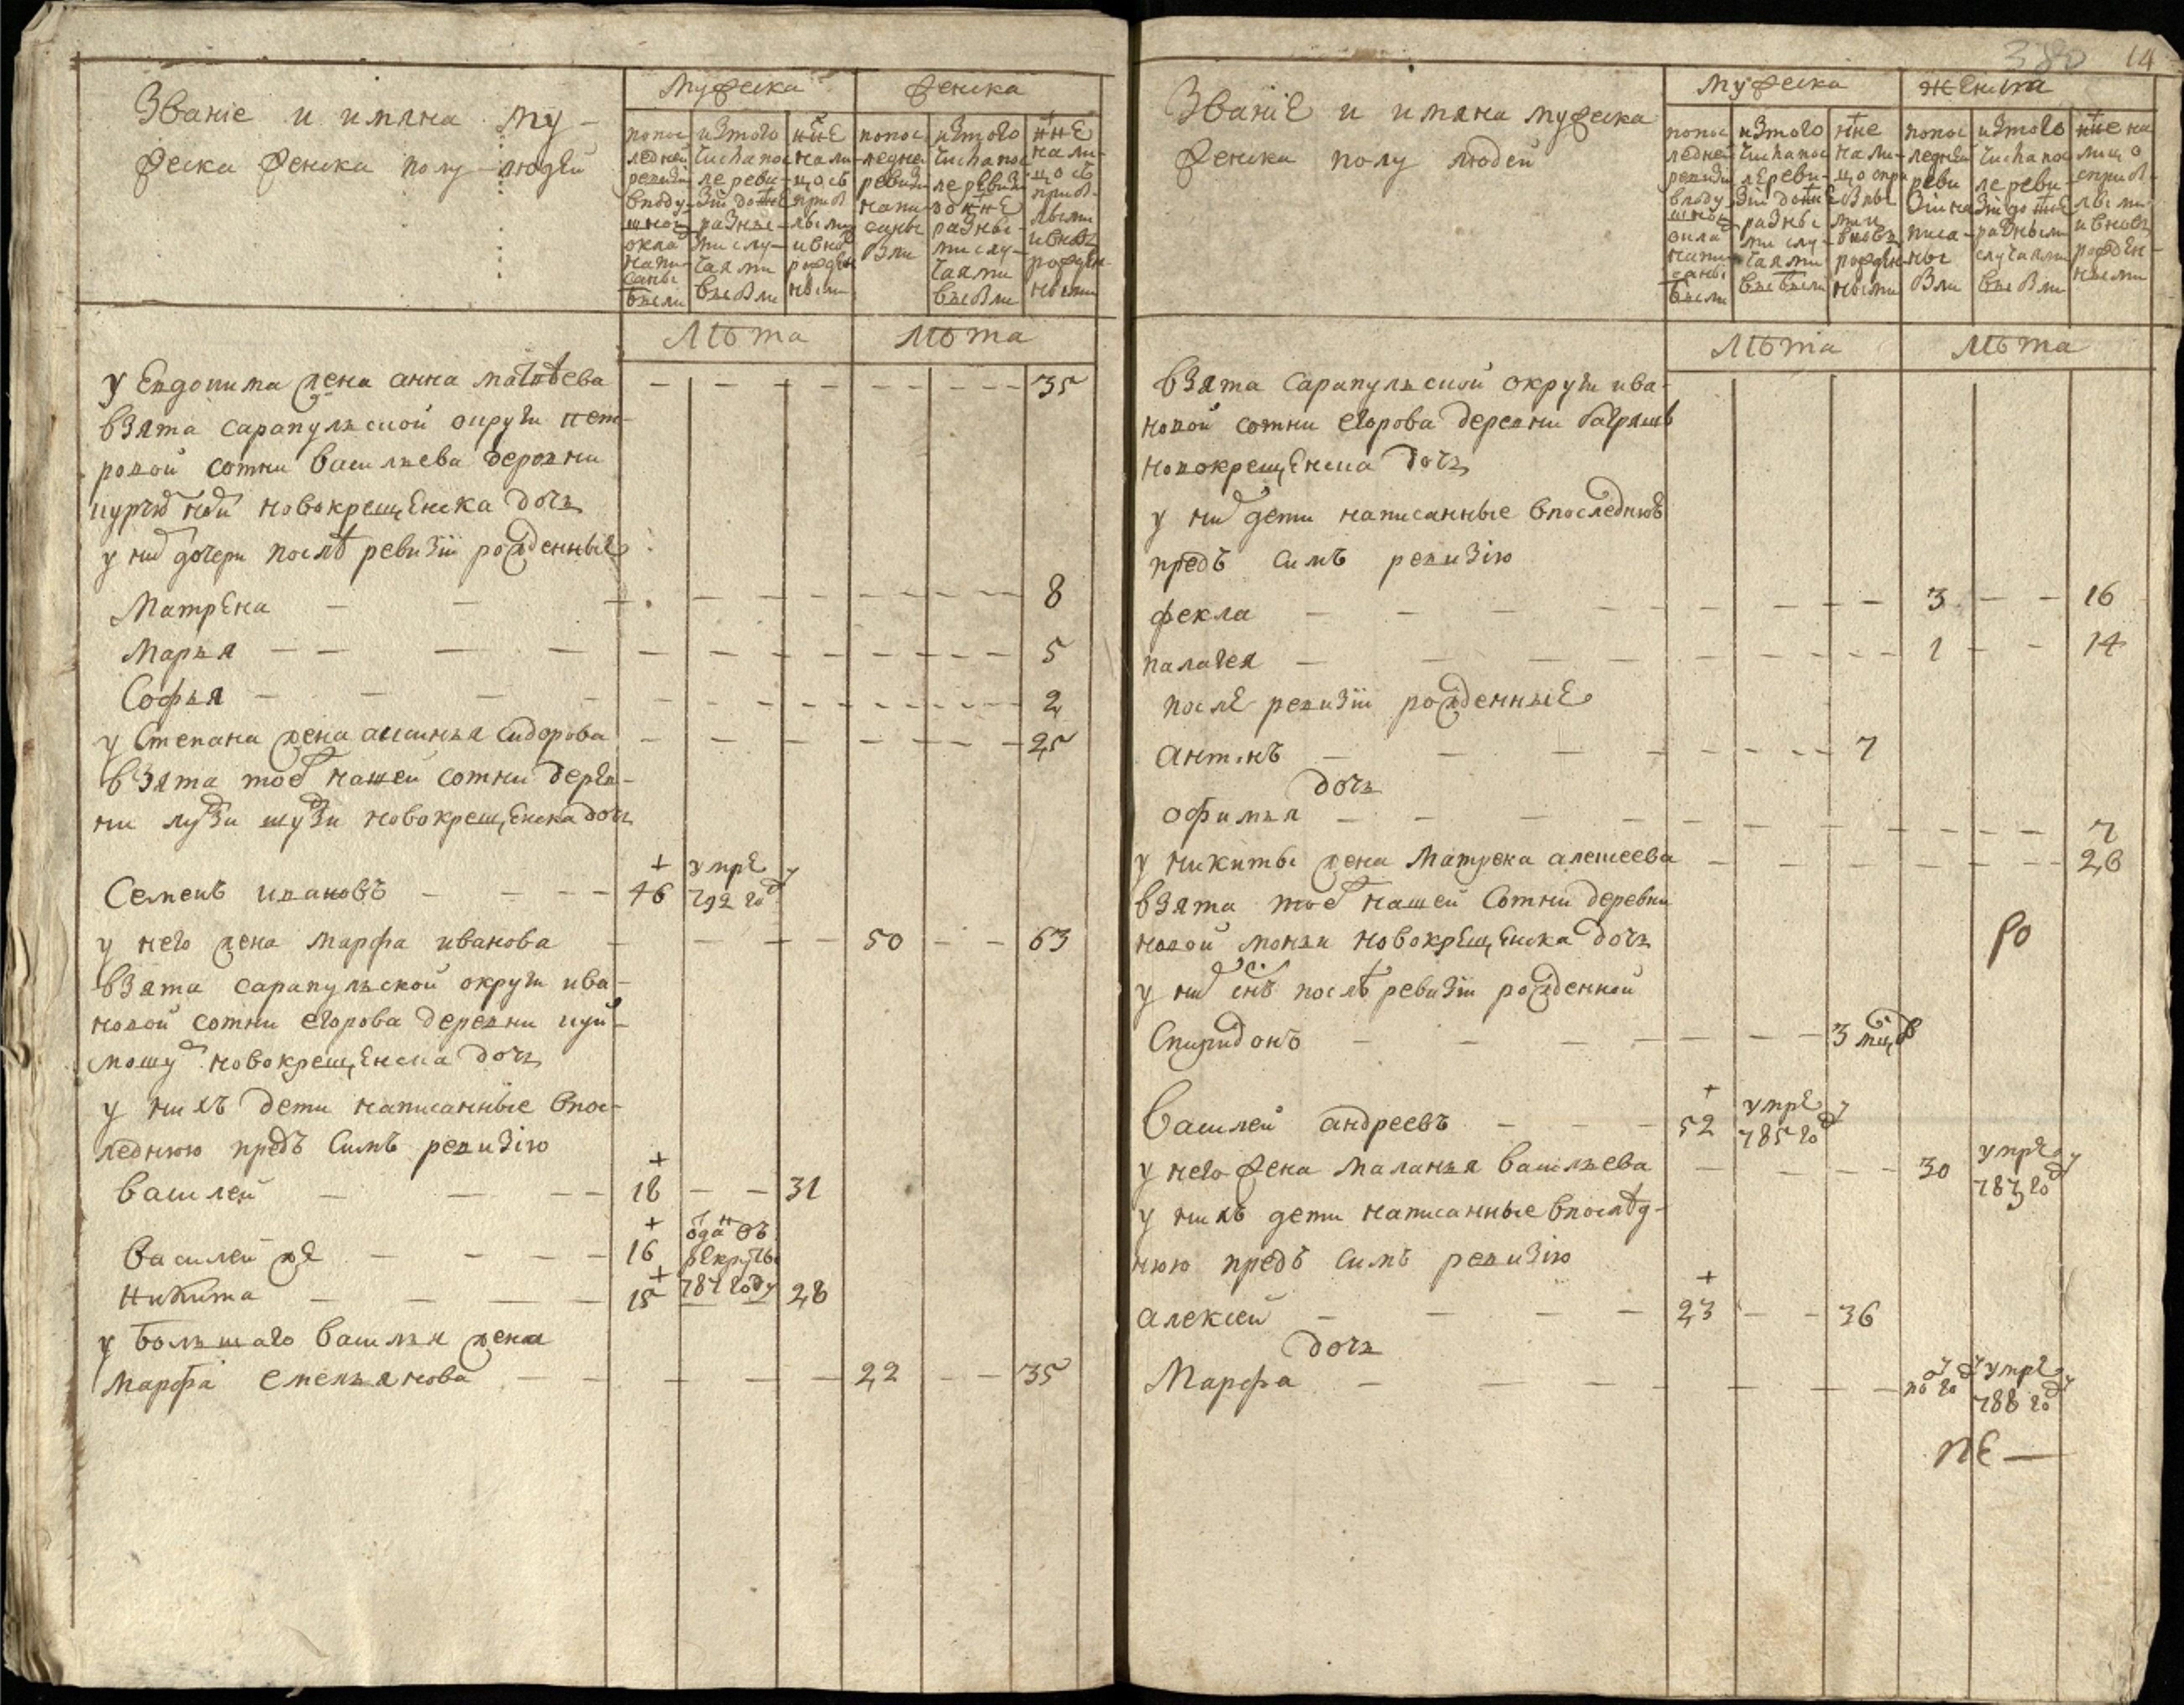 Званіе и имяна му-
жеска женска полу людей
мужеска
женска
попос
ледней
ревизіи
вподу-
шной
оклад
напи-
саны
были
изтого
числа пос
ле реви-
зіи до нне
разны-
ми слу-
чаями
выбыли
нне
нали-
цо съ
приб
лыми
и внов
рожден
ными
попос
ледне
ревизі
напи-
саны
были
изтого
числа пос
ле ревизі
до нне
разны-
ми слу-
чаями
выбыли
нне
нали-
цо съ
приб-
лыми
и вновь
рожден-
ными
лѣта
лѣта
у Евдокима жена анна матвѣева — — — 35
взята сарапульской округи пет-
ровой сотни васильева деревни
новокрещенска дочь
у них дочери послѣ ревизіи рожденные
Матрена — — — 8
Марья — — — 5
Софья — — — 2
у Степана жена аксинья сидорова — — — 25
взята тое нашей сотни дерев-
ни лузи шузи новокрещенска дочь
Семенъ ивановъ — — — 46 умре 792 году
у него жена марфа иванова — — — 50 — — 63
взята сарапульской округи ива-
новой сотни егорова деревни
новокрещенска дочь
у нихъ дети написанные впос-
леднюю предъ симъ ревизію
василей — — — 18 — — 31
василей же — — — 16 отданъ в рекруты 787 году
никита — — — 15 — — 28
у большаго василья жена
марфа емельянова — — — 22 — — 35
380 14
Званіе и имяна мужеска
женска полу людей
мужеска
женска
попос
ледней
ревизіи
вподу
шной
оклад
напи
саны
были
изтого
числа пос
ле реви-
зіи до нне
разны
ми слу-
чаями
выбыли
нне
нали-
цо спри
былы
ми и
вновь
рожден
ными
попос
ледней
реви
зіи на
писа-
ны
были
изтого
числа пос
ле реви-
зіи до нне
разными
случаями
выбыли
нне на
лицо
сприб-
лыми
и вновь
рожден-
ными
лѣта
лѣта
взята сарапульской округи ива-
новой сотни егорова деревни
новокрещенска дочь
у них дети написанные впоследнюю
предъ симъ ревизію
фекла — — — 3 — — 16
палагея — — — 1 — — 14
после ревизіи рожденные
— — — 7
дочь
офимья — — — 7
у никиты жена матрена алексеева — — — 26
взята тое нашей сотни деревни
новой моньи новокрещенска дочь
у них снъ послѣ ревизіи рожденной
Спиридонъ — — — 3 мцов
василей андреевъ — — — 52 умре 785 году
у него жена маланья васильева — — — 30 умре 783 году
у нихъ дети написанные впослѣд-
нюю предъ симъ ревизію
алексей — — — 23 — — 36
дочь
Марфа — — — умре 788 году